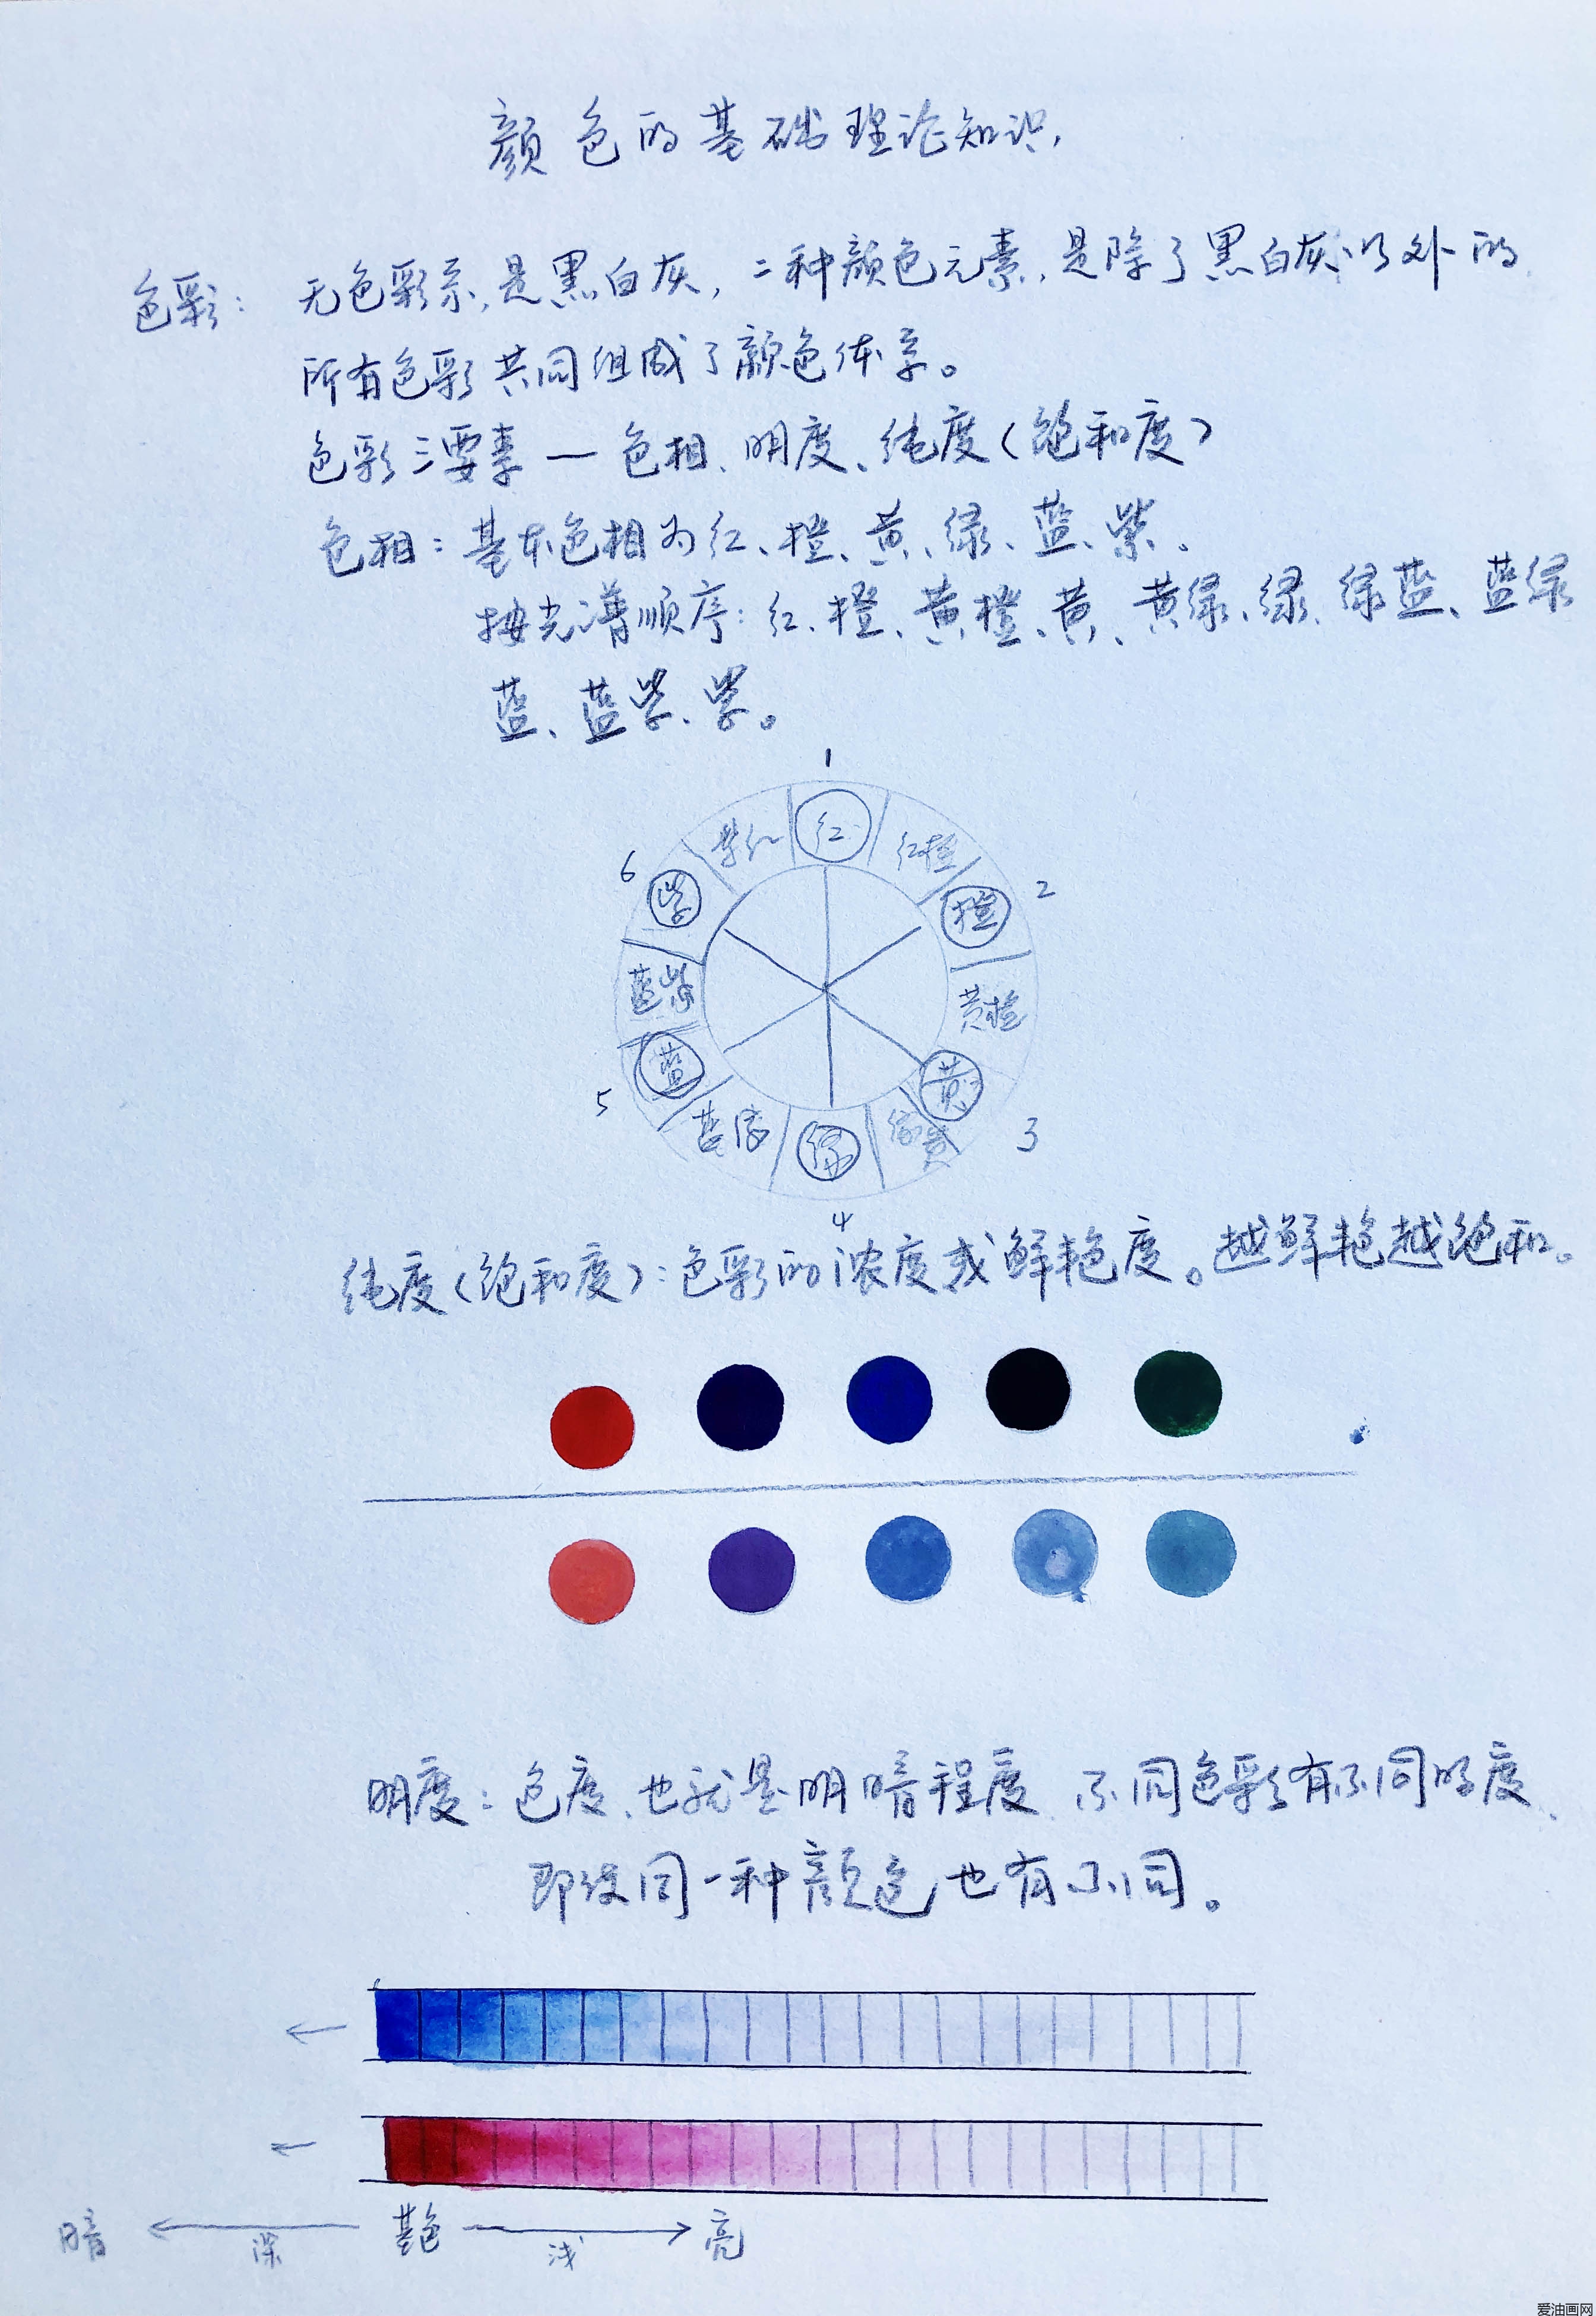 颜色的基础理论知识,
色彩: 无色彩系,是黑白灰,二种颜色元素,是除了黑白灰以外的
所有色彩共同组成了颜色体系。
色彩三要素 — 色相、明度、纯度(饱和度)
色相: 基本色相为红、橙、黄、绿、蓝、紫。
按光谱顺序: 红、橙、黄橙、黄、黄绿、绿、绿蓝、蓝绿
蓝、蓝紫、紫。
1
紫红 红 红橙
6 紫 橙 2
蓝紫 黄橙
5 蓝 黄 3
蓝绿 绿 绿黄
4
纯度(饱和度): 色彩的浓度或鲜艳度。越鲜艳越饱和。
明度: 色度、也就是明暗程度、不同色彩有不同明度、
即使同一种颜色也有不同。
暗 深 基色 浅 亮
爱油画网